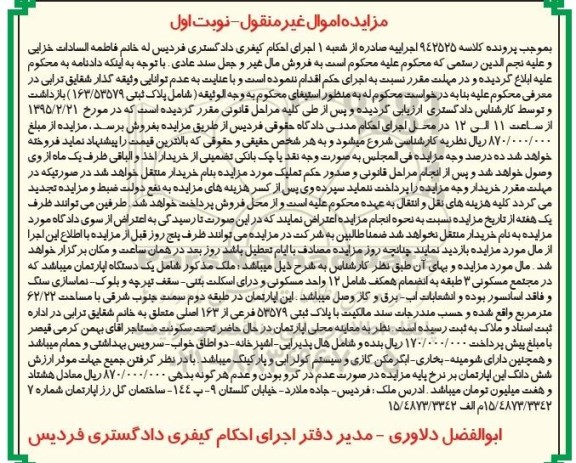 مزایده اموال غیر منقول - نوبت اول
بموجب پرونده کلاسه ۹۴۲۵۲۵ اجراییه صادره از شعبه ۱ اجرای احکام کیفری دادگستری فردیس له خانم فاطمه السادات خزایی
و علیه نجم الدین رستمی که محکوم علیه محکوم است به فروش مال غیر و جعل سند عادی . با توجه به اینکه دادنامه به محکوم
علیه ابلاغ گردیده و در مهلت مقرر نسبت به اجرای حکم اقدام ننموده است و با عنایت به عدم توانایی وثیقه گذار شقایق ترابی در
معرفی محکوم علیه بنا به درخواست محکوم له به منظور استیفای محکوم به وجه الوثیقه ( شامل پلاک ثبتی ۱۶۳/۵۳۵۷۹ ) بازداشت
و توسط کارشناس دادگستری ارزیابی گردیده و پس از طی کلیه مراحل قانونی مقرر گردیده است که در مورخ ۱۳۹۵/۲/۲۱
از ساعت ۱۱ الی ۱۲ در محل اجرای احکام مدنی دادگاه حقوقی فردیس از طریق مزایده بفروش برسد، مزایده از مبلغ
۸۷۰/۰۰۰/۰۰۰ ریال نظریه کارشناسی شروع میشود و به هر شخص حقیقی و حقوقی که بالاترین قیمت را پیشنهاد نماید فروخته
خواهد شد ده درصد وجه مزایده فی المجلس به صورت وجه نقد یا چک بانکی تضمینی از خریدار اخذ و الباقی ظرف یک ماه از وی
وصول خواهد شد و پس از انجام مراحل قانونی و صدور حکم تملیک مورد مزایده بنام خریدار منتقل خواهد شد در صورتیکه در
مهلت مقرر خریدار وجه مزایده را پرداخت ننماید سپرده وی پس از کسر هزینه های مزایده به نفع دولت ضبط و مزایده تجدید
می گردد کلیه هزینه های نقل و انتقال به عهده محکوم علیه است و از محل فروش پرداخت خواهد شد. طرفین می توانند ظرف
یک هفته از تاریخ مزایده نسبت به نحوه انجام مزایده اعتراض نمایند که در این صورت تا رسیدگی به اعتراض از سوی دادگاه مورد
مزایده به نام خریدار منتقل نخواهد شد ضمنا طالبین به شرکت در مزایده می توانند ظرف پنج روز قبل از مزایده با اطلاع این اجرا
از مال مورد مزایده بازدید نمایند چنانچه روز مزایده مصادف با ایام تعطیل باشد روز بعد در همان ساعت و مکان برگزار خواهد
شد . مال مورد مزایده و بهای آن طبق نظر کارشناس به شرح ذیل میباشد : ملک مذکور شامل یک دستگاه اپارتمان میباشد که
در مجتمع مسکونی ۳ طبقه به انضمام همکف شامل ۱۲ واحد مسکونی و درای اسکلت بتنی - سقف تیرچه و بلوک - نماسازی سنگ
و فاقد اسانسور بوده و انشعابات اب - برق و گاز وصل میباشد . این اپارتمان در طبقه دوم سمت جنوب شرقی با مساحت ۶۲/۲۲
مترمربع واقع شده و حسب مندرجات سند مالکیت با پلاک ثبتی ۵۳۵۷۹ فرعی از ۱۶۳ اصلی متعلق به خانم شقایق ترابی در اداره
ثبت اسناد و ملاک به ثبت رسیده است . نظر به معاینه محلی اپارتمان در حال حاضر تحت سکونت مستاجر اقای بهمن کرمی قیصر
با مبلغ پیش پرداخت ۱۷۰/۰۰۰/۰۰۰ ریال بنده و شامل هال پذیرایی - اشپزخانه - دو اطاق خواب - سرویس بهداشتی و حمام میباشد
و همچنین دارای شومینه - بخاری - ابگرمکن گازی و سیستم کولر ابی و پارکینگ میباشد . با در نظر گرفتن جمیع جهات موثر ارزش
شش دانگ این اپارتمان بر نرخ پایه مزایده در صورت عدم در گرو بودن و عدم هرگونه بدهی ۸۷۰/۰۰۰/۰۰۰ ریال معادل هشتاد
و هفت میلیون تومان میباشد . ادرس ملک : فردیس - جاده ملارد - خیابان گلستان ۹ - پ ۱۴۴ - ساختمان گل رز اپارتمان شماره ۷
۱۵/۴۸۷۳/۳۳۴۲م الف ۱۵/۴۸۷۳/۳۳۴۲
ابوالفضل دلاوری - مدیر دفتر اجرای احکام کیفری دادگستری فردیس